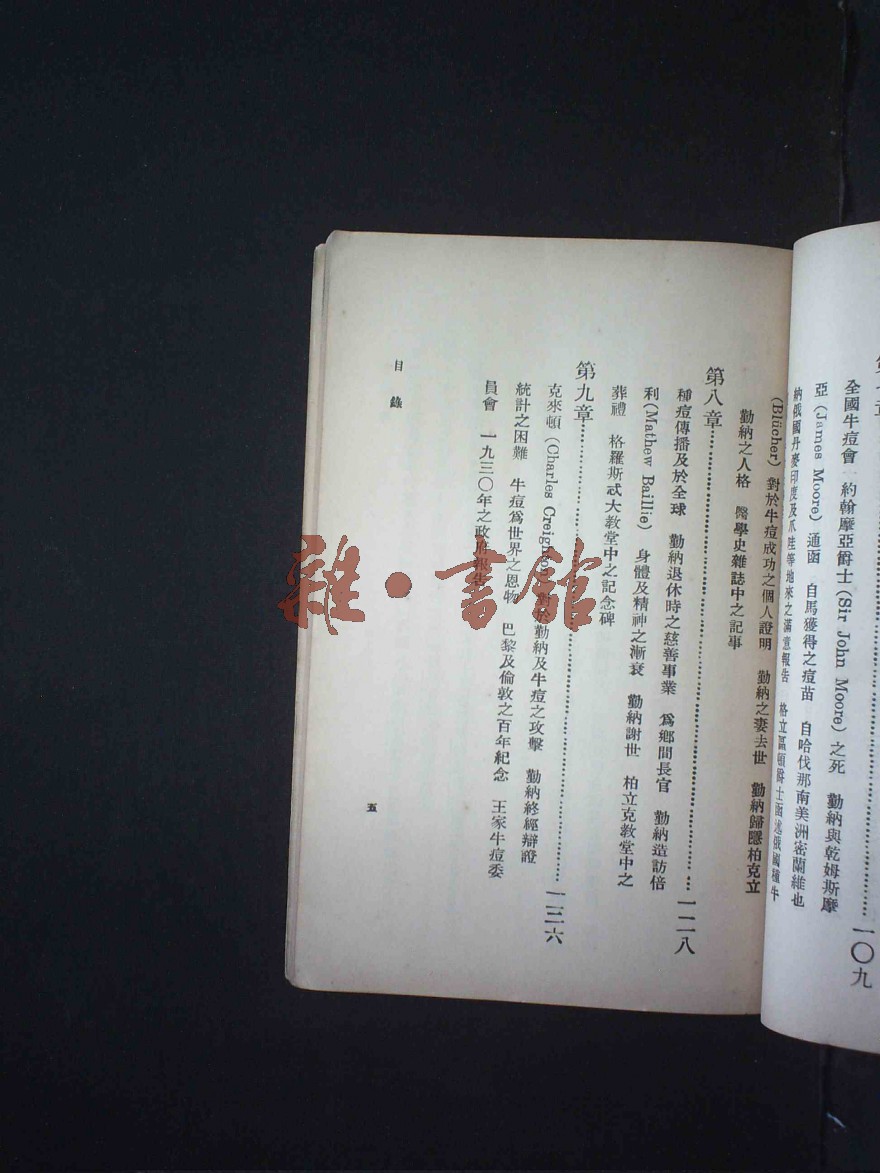 章
一〇九
全國牛痘會 約翰摩亞爵士(Sir John Moore)之死 勤納與乾姆斯摩
亞(James Moore)通函 自馬獲得之痘苗 自哈伐那南美洲密蘭維也
納俄國丹麥印度及爪哇等地來之滿意報告 格立區頓爵士函述俄國種牛
(Blücher)對於牛痘成功之個人證明 勤納之妻去世 勤納歸隱柏克立
勤納之人格 醫學史雜誌中之記事
第八章……一二八
種痘傳播及於全球 勤納退休時之慈善事業 為鄉間長官 勤納造訪倍
利(Mathew Baillie) 身體及精神之漸衰 勤納謝世 柏立克教堂中之
葬禮 格羅斯忒大教堂中之記念碑
第九章……一三六
克來頓(Charles Creighton)對於勤納及牛痘之攻擊 勤納終經辯證
統計之困難 牛痘為世界之恩物 巴黎及倫敦之百年紀念 王家牛痘委
員會 一九三〇年之政府報告
目錄
五
雜·書館